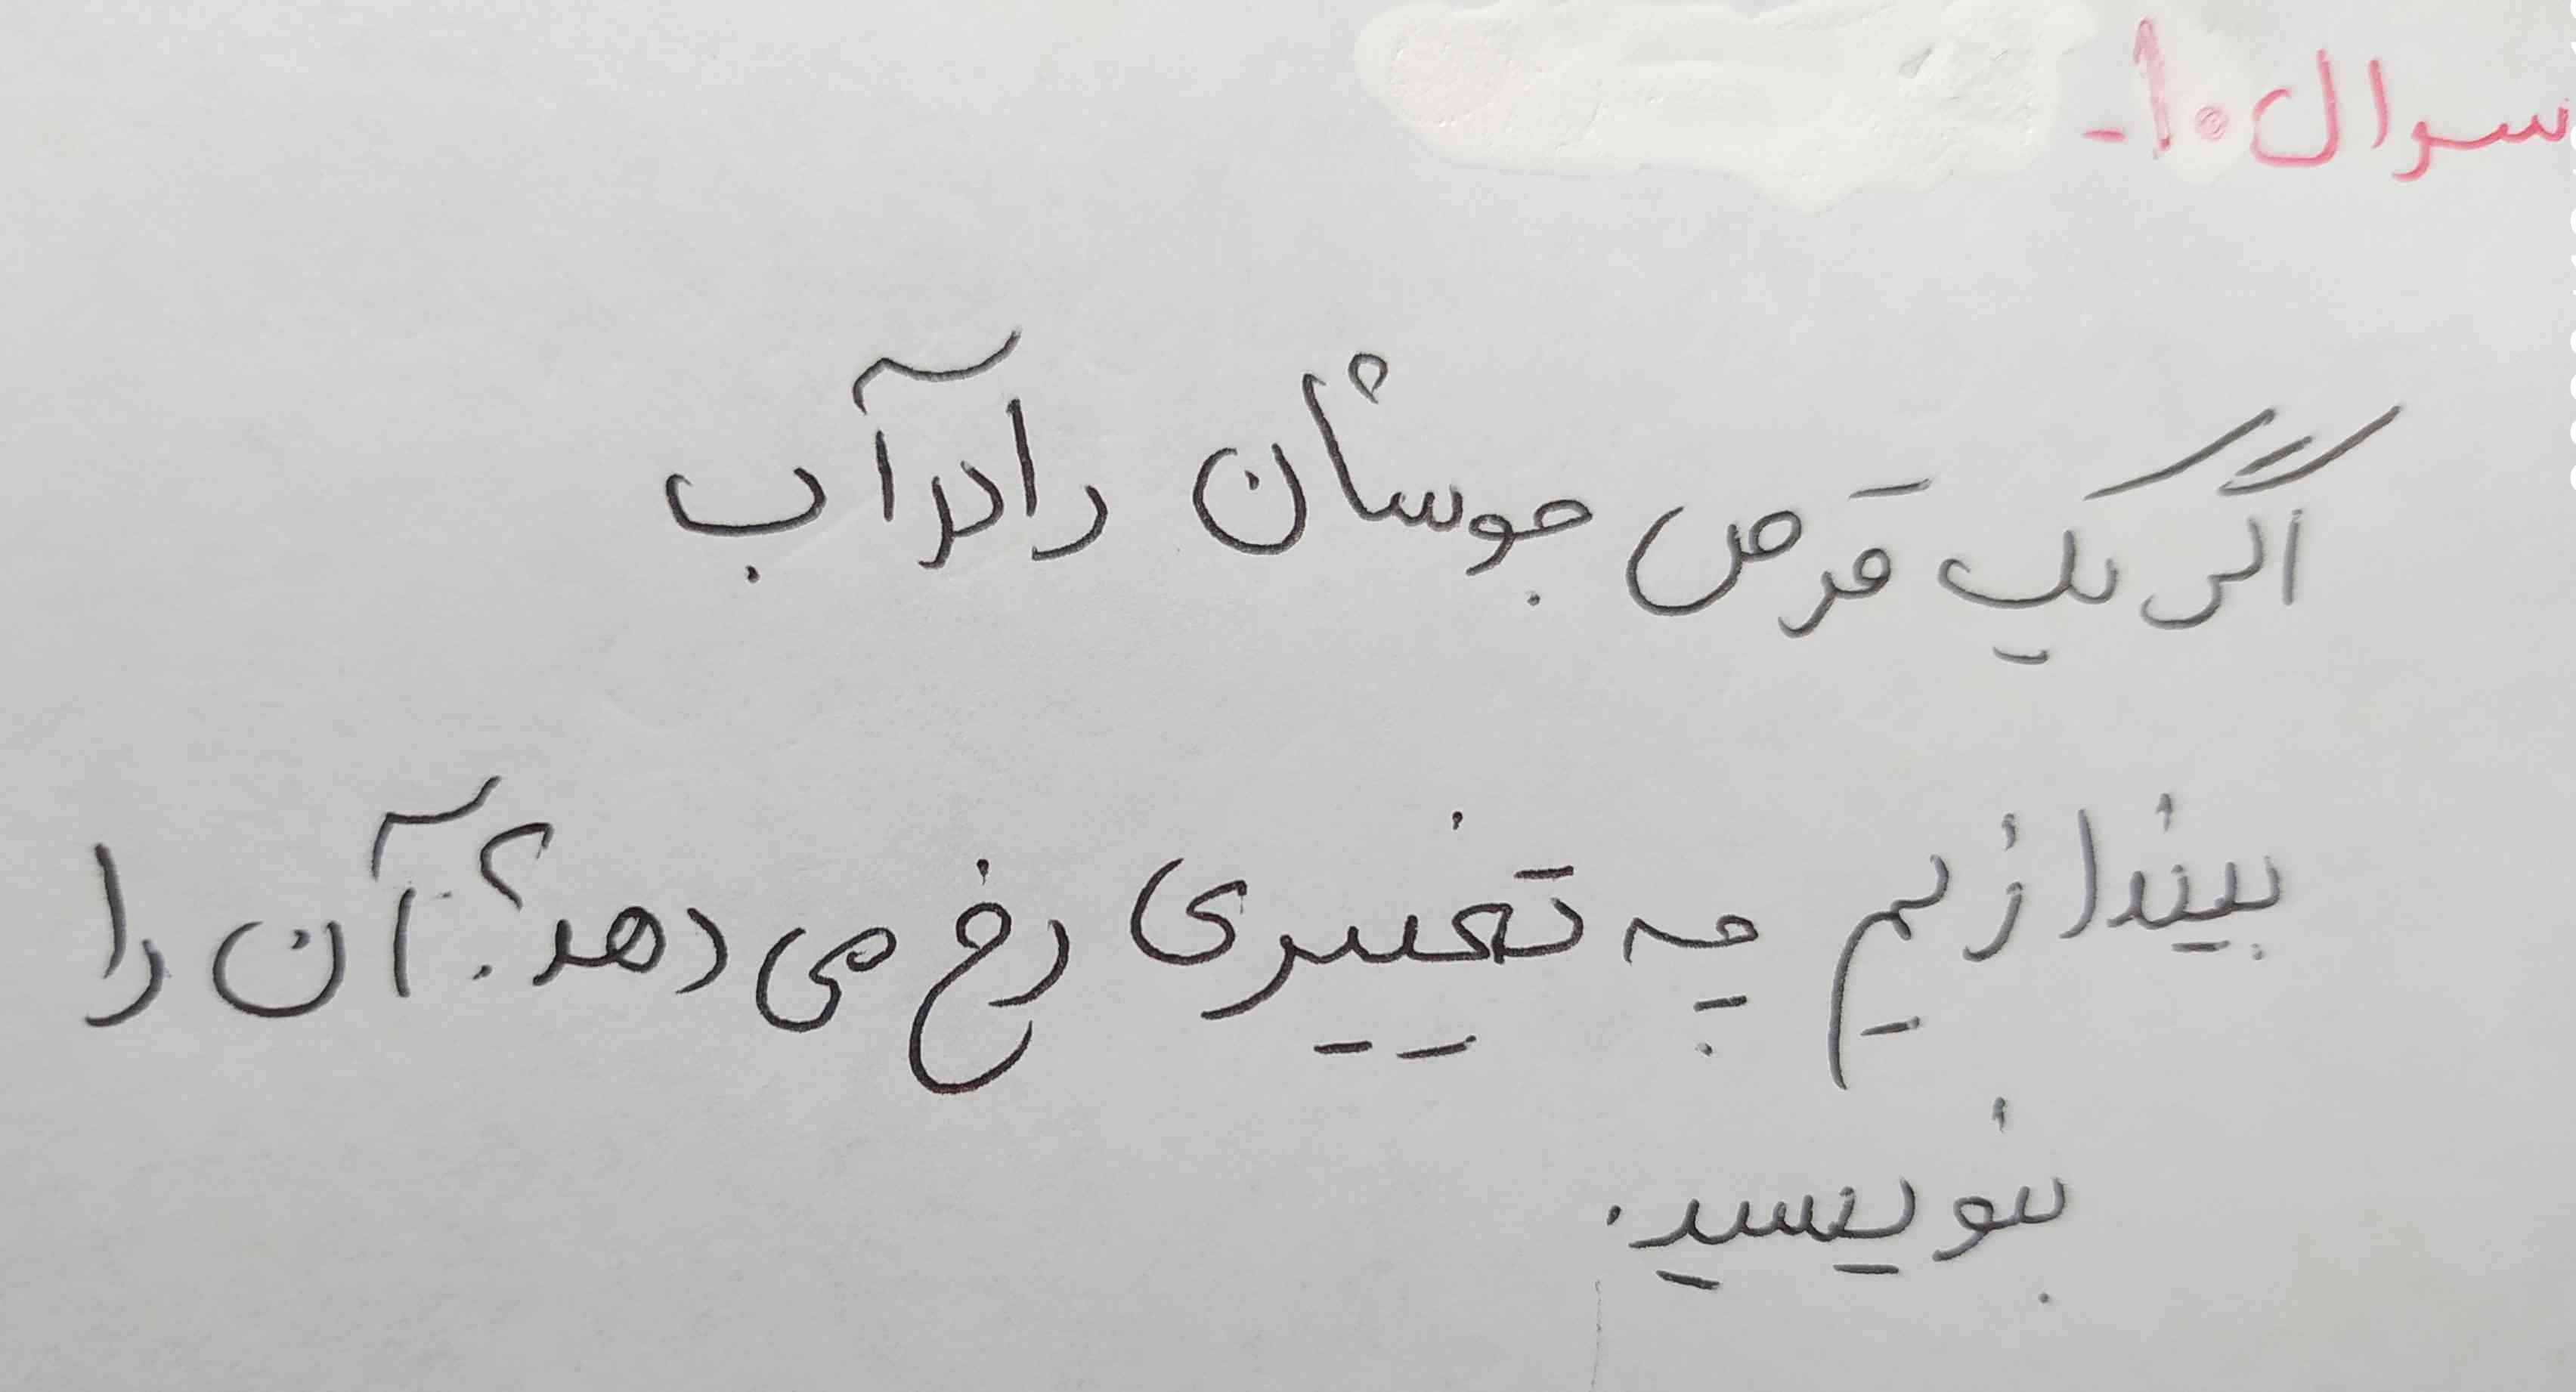 سوال ۱۰-
اگر یک قرص جوشان را در آب
بیندازیم چه تغییری رخ می دهد؟ آن را
بنویسید.